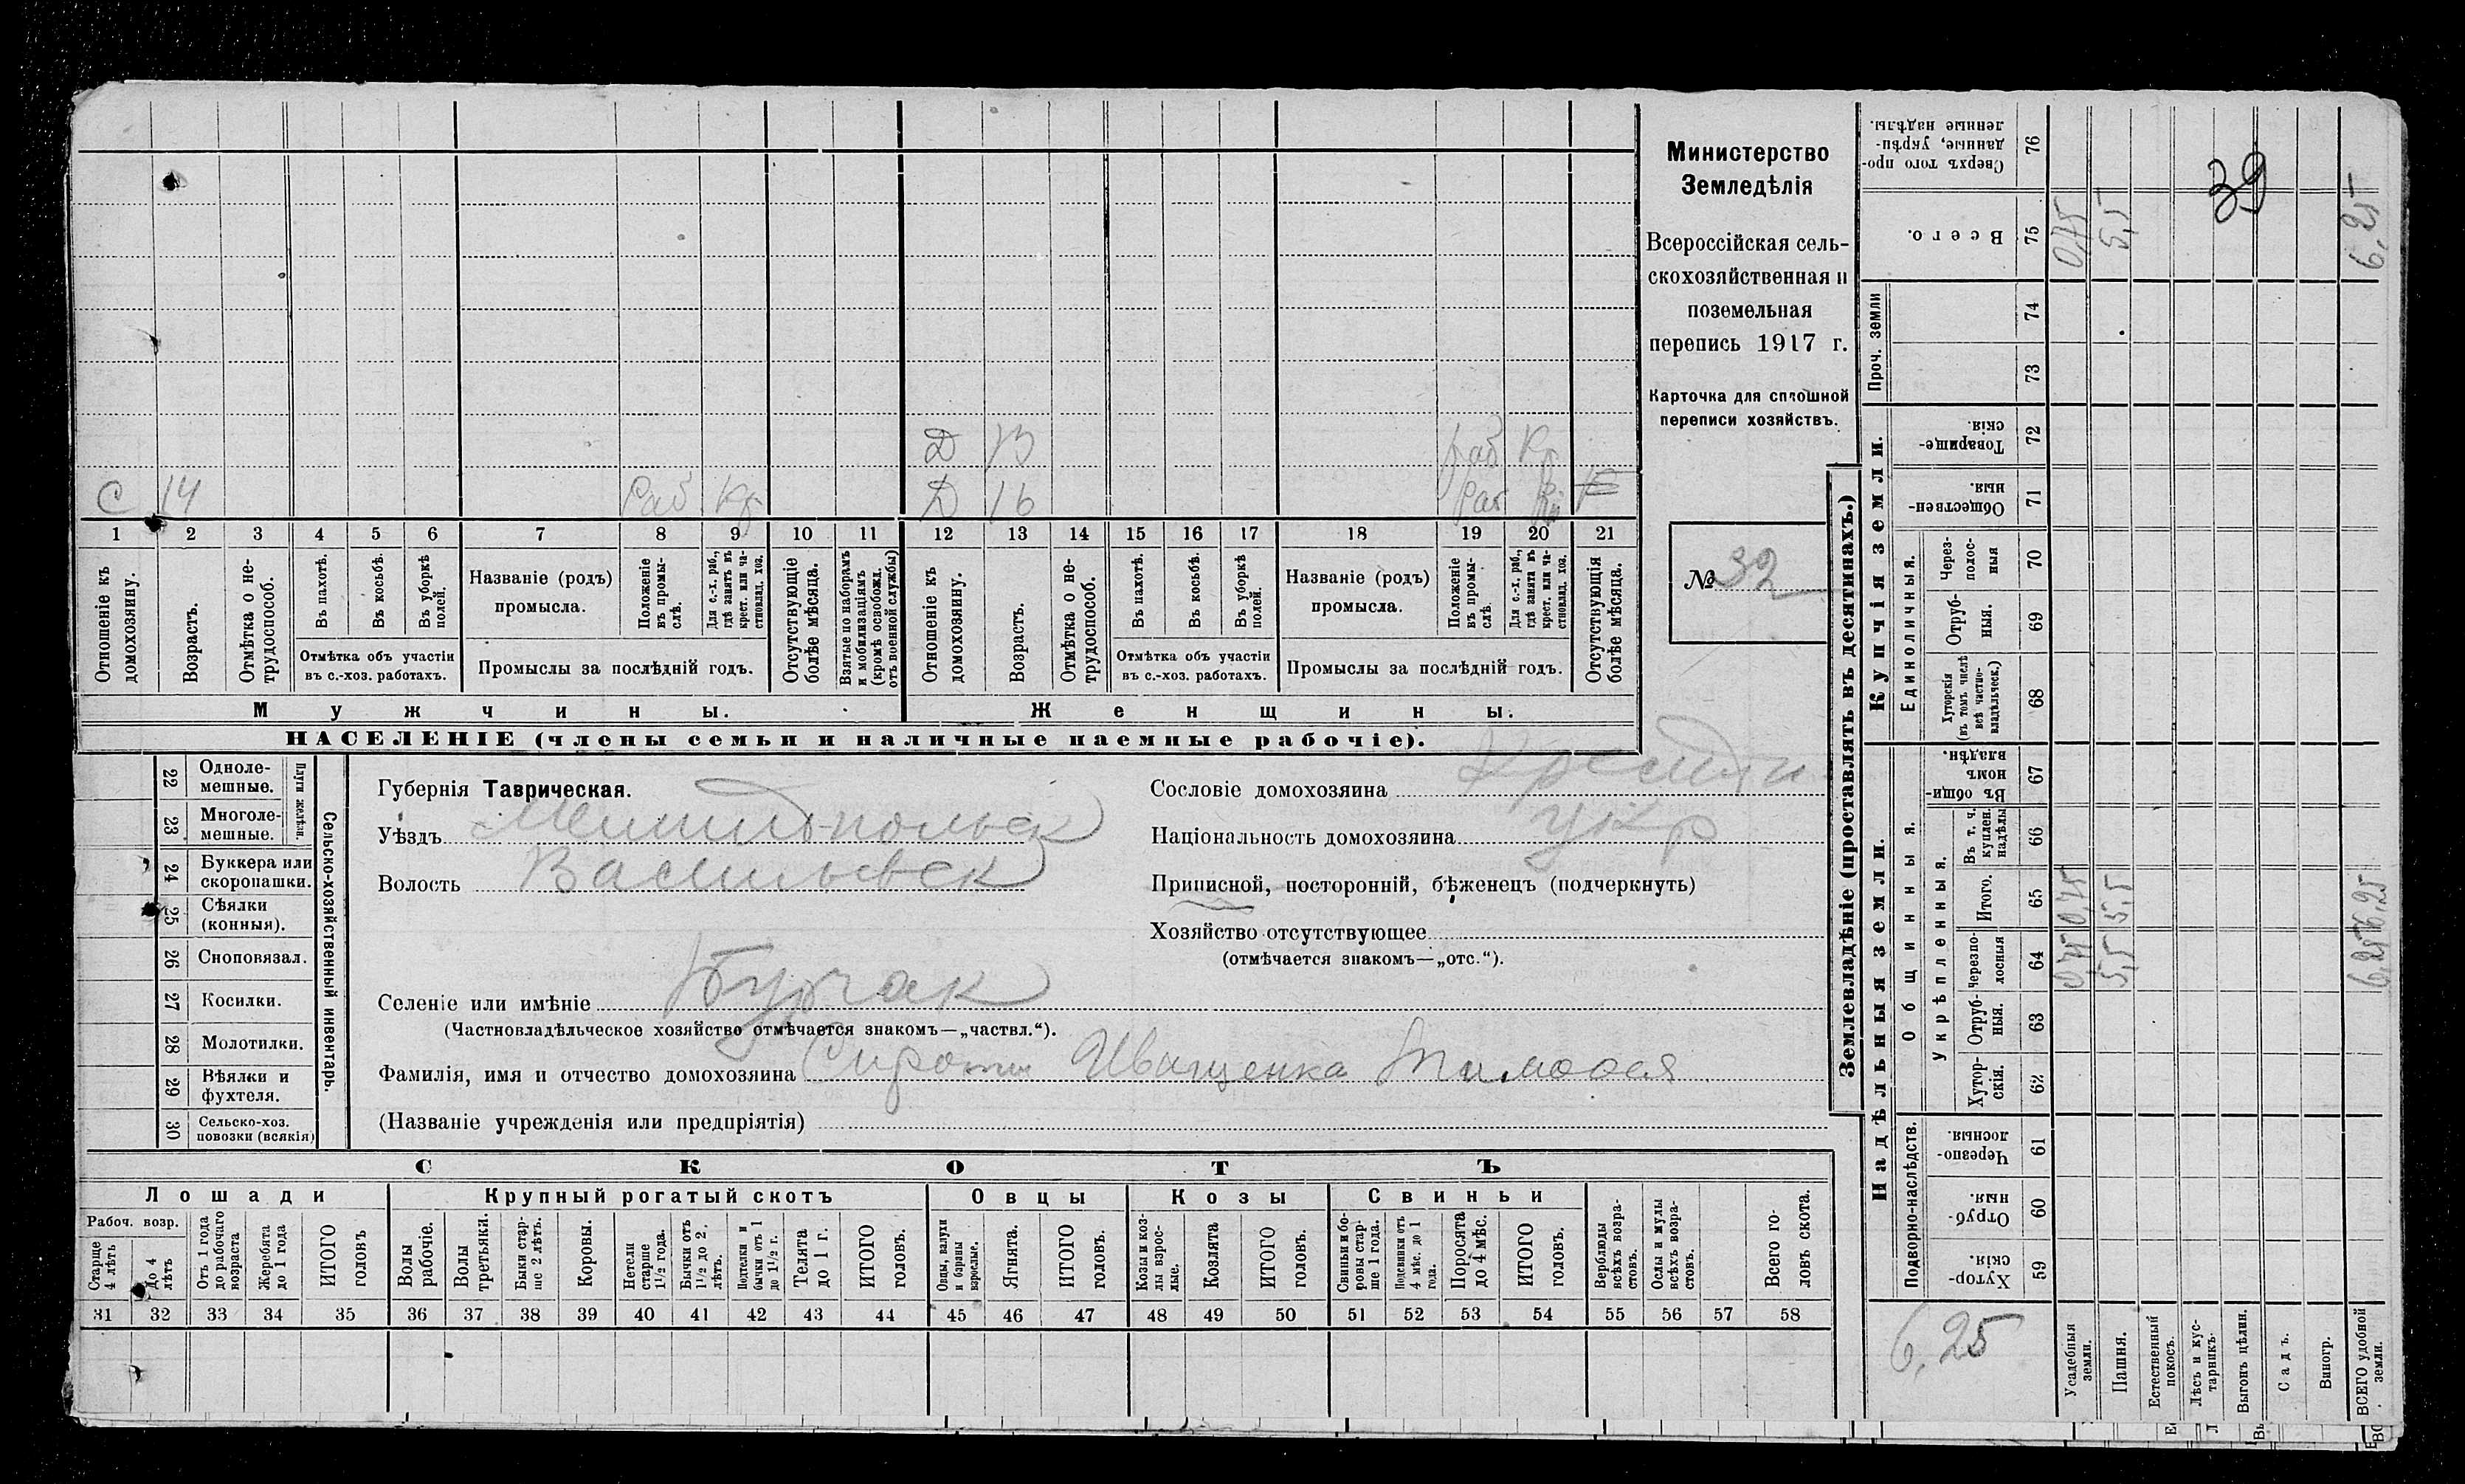 Министерство
Земледѣлія
Всероссійская сель-
скохозяйственная и
поземельная
перепись 1917 г.
Карточка для сплошной
переписи хозяйствъ.
№ 32
39
Д 13 раб Кр
С 14 Раб Кр Д 16 Раб
1 2 3 4 5 6 7 8 9 10 11 12 13 14 15 16 17 18 19 20 21
Отношеніе къ домохозяину.
Возрастъ.
Отмѣтка о не-трудоспособ.
Въ пахотѣ.
Въ косьбѣ.
Въ уборкѣ полей.
Отмѣтка объ участіи въ с.-хоз. работахъ.
Названіе (родъ) промысла.
Положеніе въ промы-слѣ.
Для с.-х. раб., гдѣ занятъ въ крест. или ча-стновлад. хоз.
Промыслы за послѣдній годъ.
Отсутствующіе болѣе мѣсяца.
Взятые по наборамъ и мобилизаціямъ (кромѣ освобожд. отъ военной службы)
Отношеніе къ домохозяину.
Возрастъ.
Отмѣтка о не-трудоспособ.
Въ пахотѣ.
Въ косьбѣ.
Въ уборкѣ полей.
Отмѣтка объ участіи въ с.-хоз. работахъ.
Названіе (родъ) промысла.
Положеніе въ промы-слѣ.
Для с.-х. раб., гдѣ занята въ крест. или ча-стновлад. хоз.
Промыслы за послѣдній годъ.
Отсутствующія болѣе мѣсяца.
Мужчины.
Женщины.
НАСЕЛЕНІЕ (члены семьи и наличные наемные рабочіе).
22 Одноле-мешные.
23 Многоле-мешные.
Плуги желѣзн.
24 Буккера или скоропашки.
25 Сѣялки (конныя).
26 Сноповязал.
27 Косилки.
28 Молотилки.
29 Вѣялки и фухтеля.
30 Сельско-хоз. повозки (всякія)
Сельско-хозяйственный инвентарь.
Губернія Таврическая.
Уѣздъ Мелитопольск
Волость Васильевск
Селеніе или имѣніе Бурчак
(Частновладѣльческое хозяйство отмѣчается знакомъ—„частвл.“).
Фамилія, имя и отчество домохозяина Сироты Иващенка Тимофея
(Названіе учрежденія или предпріятія)
Сословіе домохозяина Крестян
Національность домохозяина укр
Приписной, посторонній, бѣженецъ (подчеркнуть)
Хозяйство отсутствующее
(отмѣчается знакомъ—„отс.“).
СКОТЪ
Лошади
Крупный рогатый скотъ
Овцы
Козы
Свиньи
Рабоч. возр.
Старше 4 лѣтъ
до 4 лѣтъ
Отъ 1 года до рабочаго возраста
Жеребята до 1 года
ИТОГО головъ
Волы рабочіе.
Волы третьяки.
Быки стар-ше 2 лѣтъ.
Коровы.
Нетели старше 1½ года.
Бычки отъ 1½ до 2 лѣтъ.
Подтелки и бычки отъ 1 до 1½ г.
Телята до 1 г.
ИТОГО головъ.
Овцы, валухи и бараны взрослые.
Ягнята.
ИТОГО головъ.
Козы и коз-лы взрос-лые.
Козлята
ИТОГО головъ.
Свиньи и бо-ровы стар-ше 1 года.
Подсвинки отъ 4 мѣс. до 1 года.
Поросята до 4 мѣс.
ИТОГО головъ.
Верблюды всѣхъ возра-стовъ.
Ослы и мулы всѣхъ возра-стовъ.
Всего го-ловъ скота.
31 32 33 34 35 36 37 38 39 40 41 42 43 44 45 46 47 48 49 50 51 52 53 54 55 56 57 58
Землевладѣніе (проставлять въ десятинахъ.)
Купчія земли.
Надѣльныя земли.
Сверхъ того про-данные, укрѣп-ленные надѣлы. 76
Всего. 75 0,75 5,5 6,25
Проч. земли 74 73
Товарище-скія. 72
Обществен-ныя. 71
Единоличныя.
Через-полос-ныя 70
Отруб-ныя. 69
Хуторскія (въ томъ числѣ всѣ частно-владѣльческ.) 68
Общинныя.
Въ общин-номъ владѣн. 67
Укрѣпленныя.
Въ т. ч. куплен. надѣлы 66
Итого. 65 0,75 5,5 6,25
Черезпо-лосныя 64 0,75 5,5 6,25
Отруб-ныя. 63
Хутор-скія. 62
Подворно-наслѣдств.
Черезпо-лосныя. 61
Отруб-ныя. 60
Хутор-скія. 59
6,25
Усадебныя земли.
Пашня.
Естественный покосъ.
Лѣсъ и кус-тарникъ.
Выгонъ цѣлин.
Садъ.
Виногр.
ВСЕГО удобной земли.